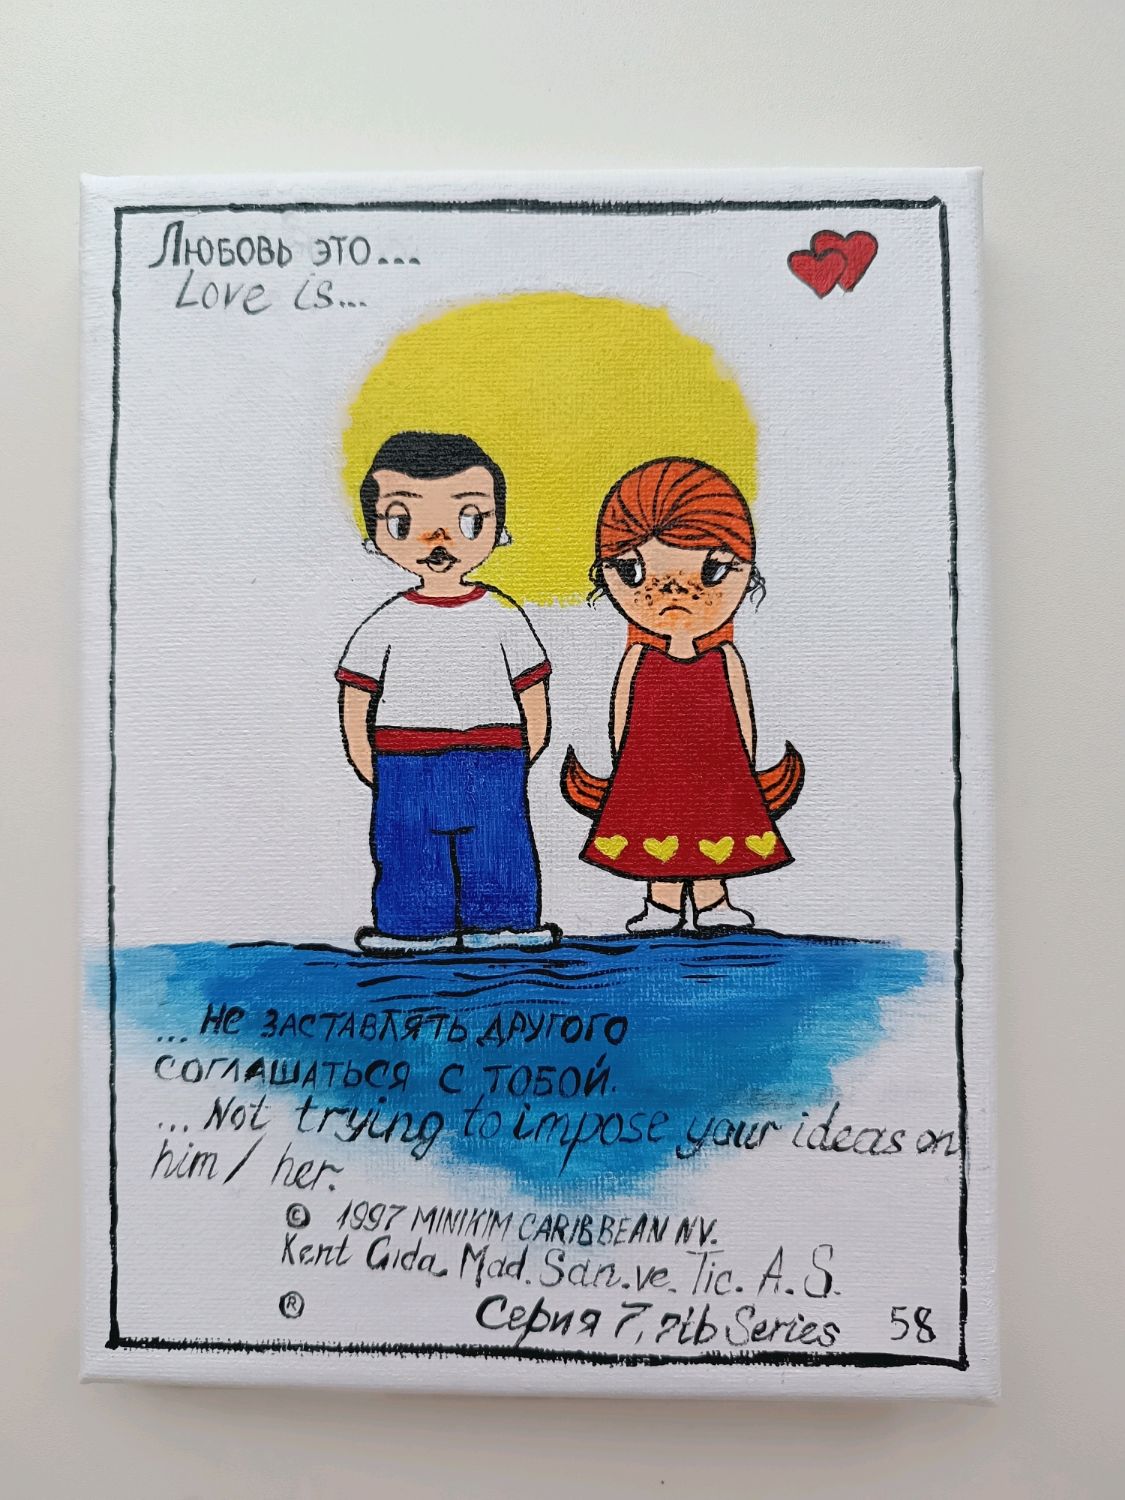 Любовь это...
Love is...
...не заставлять другого
соглашаться с тобой.
...Not trying to impose your ideas on
him / her.
© 1997 MINIKIM CARIBBEAN NV.
Kent Gıda Mad. San. ve. Tic. A. S.
®
Серия 7, 7tb Series 58